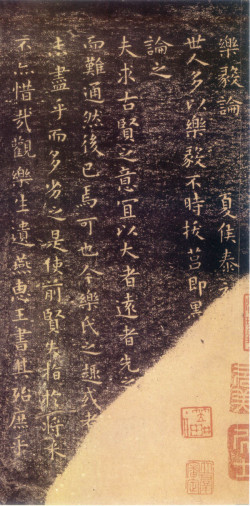 樂毅論 夏侯泰
世人多以樂毅不時拔莒即墨
論之
夫求古賢之意宜以大者遠者先之
而難通然後已焉可也今樂氏之趣或者
未盡乎而多劣之是使前賢失指於將来
不亦惜哉觀樂生遺燕惠王書其殆庶乎